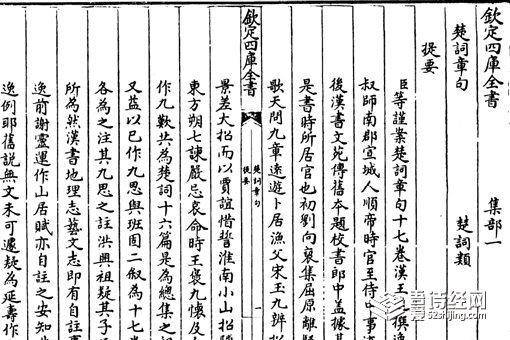 欽定四庫全書 集部一
楚詞章句 楚詞類
提要
臣等謹案楚詞章句十七卷漢王撰逸
叔師南郡宜城人順帝時官至侍中事
後漢書文苑傳舊本題校書郎中蓋據其
是書時所居官也初劉向裒集屈原離騷
歌天問九章遠遊卜居漁父宋玉九辨招
欽定四庫全書
楚詞章句
提要
一
景差大招而以賈誼惜誓淮南小山招
東方朔七諫嚴忌哀命時王褒九懷及
作九歎共為楚詞十六篇是為總集之
又益以已作九思與班固二叙為十七
各為之注其九思之註洪興祖疑其子
所為然漢書地理志藝文志即有自註
逸前謝靈運作山居賦亦自註之安知
逸例耶舊説無文未可遽疑為延壽作
吾詩经网
52shijing.com